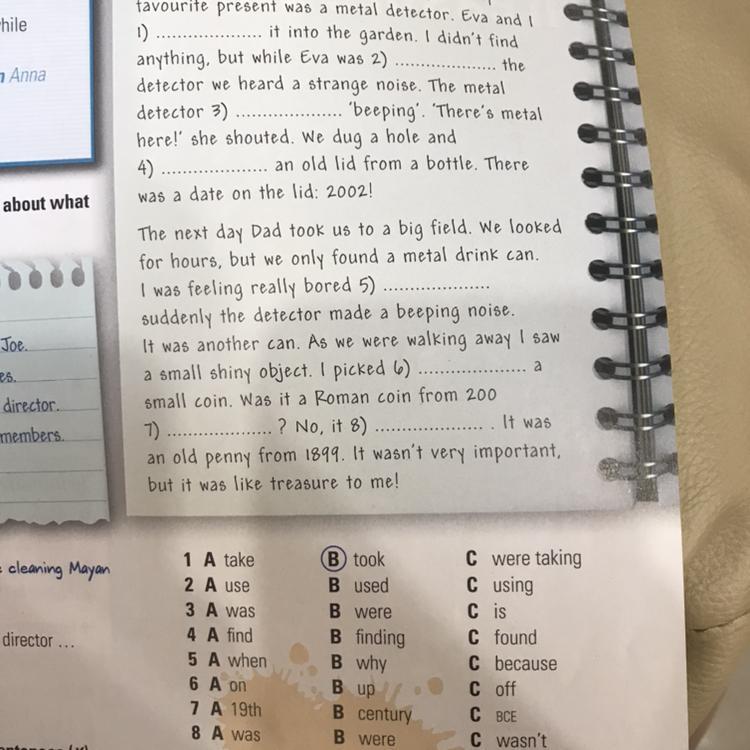 favourite present was a metal detector. Eva and I
1) .................... it into the garden. I didn't find
anything, but while Eva was 2) .................... the
detector we heard a strange noise. The metal
detector 3) .................... 'beeping'. 'There's metal
here!' she shouted. We dug a hole and
4) .................... an old lid from a bottle. There
was a date on the lid: 2002!
The next day Dad took us to a big field. We looked
for hours, but we only found a metal drink can.
I was feeling really bored 5) ....................
suddenly the detector made a beeping noise.
It was another can. As we were walking away I saw
a small shiny object. I picked 6) .................... a
small coin. Was it a Roman coin from 200
7) .................... ? No, it 8) .................... . It was
an old penny from 1899. It wasn't very important,
but it was like treasure to me!
while
Anna
about what
Joe.
director.
members.
cleaning Mayan
director ...
1 A take B took C were taking
2 A use B used C using
3 A was B were C is
4 A find B finding C found
5 A when B why C because
6 A on B up C off
7 A 19th B century C BCE
8 A was B were C wasn't